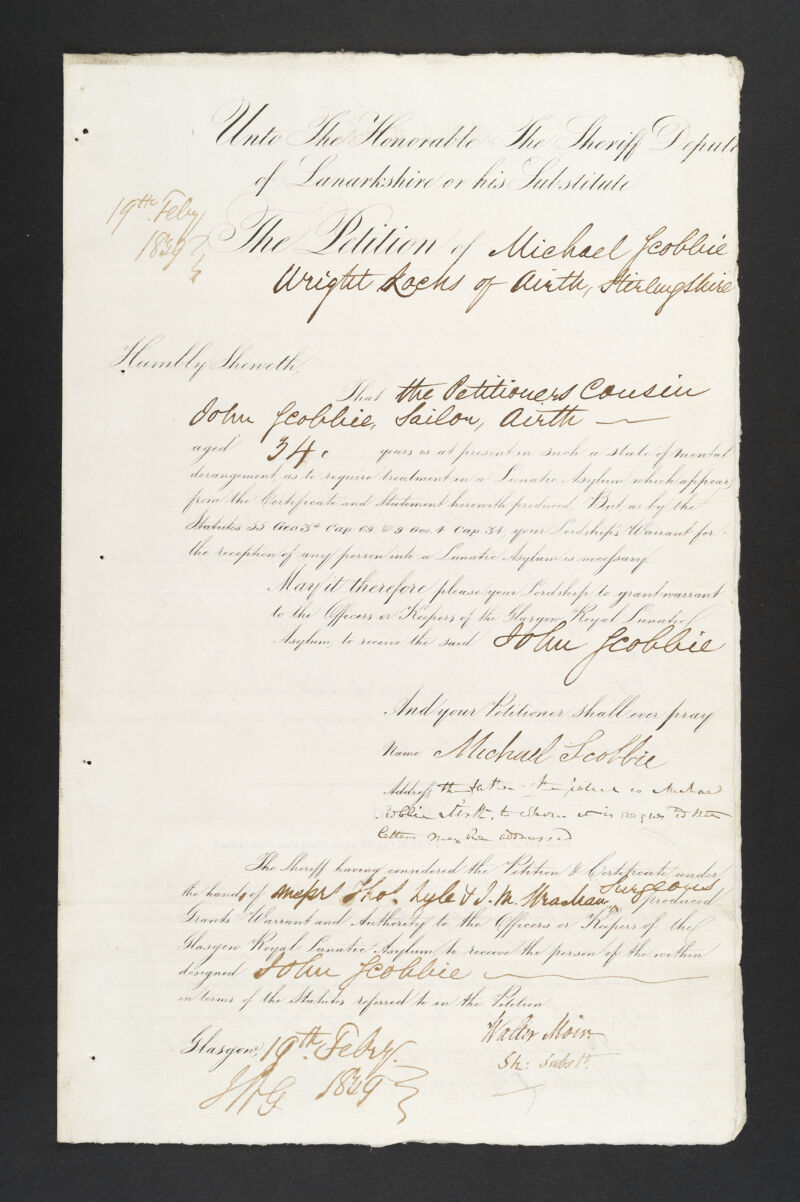 Unto The Honorable The Sheriff Depute
of Lanarkshire or his Substitute
19th Feby
1839
The Petition of Michael Scobbie
Wright Lochs of Airth, Stirlingshire
Humbly Sheweth,
That the Petitioners Cousin
John Scobbie, Sailor, Airth
aged 34. years is at present in such a state of mental
derangement as to require treatment in a Lunatic Asylum which appears
from the Certificate and Statement herewith produced. But as by the
Statutes 55 Geo. 3d Cap. 69 & 9 Geo. 4 Cap. 34, your Lordship's Warrant for
the reception of any person into a Lunatic Asylum is necessary
May it therefore please your Lordship to grant warrant
to the Officers or Keepers of the Glasgow Royal Lunatic
Asylum, to receive the said John Scobbie
And your Petitioner shall ever pray
Name Michael Scobbie
Address the father the patient is Michael
Scobbie Airth, to whom it is requested that
letters may be addressed
The Sheriff having considered the Petition & Certificate under
the hands of Messrs Thos. Lyle & J. M. Surgeons produced
Grants Warrant and Authority to the Officers or Keepers of the
Glasgow Royal Lunatic Asylum, to receive the person of the within
designed John Scobbie
in terms of the Statutes referred to in the Petition
Glasgow, 19th Feby.
1839
Walter Moir
Sh: Subst.